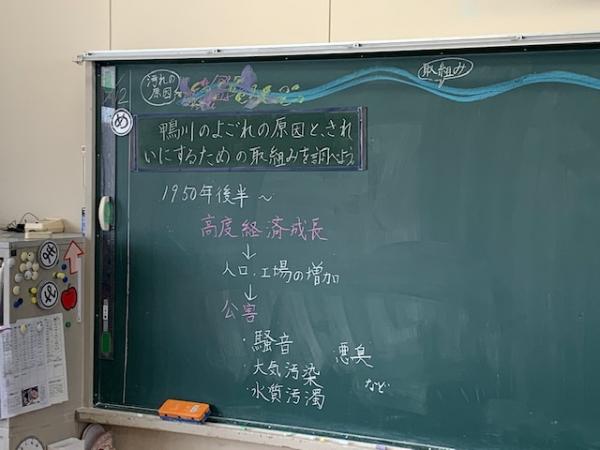 汚れの
原因
取組み
め
鴨川のよごれの原因と、きれ
いにするための取組みを調べよう。
1950年後半～
高度経済成長
↓
人口・工場の増加
↓
公害
・騒音
悪臭
・大気汚染
・水質汚濁
など